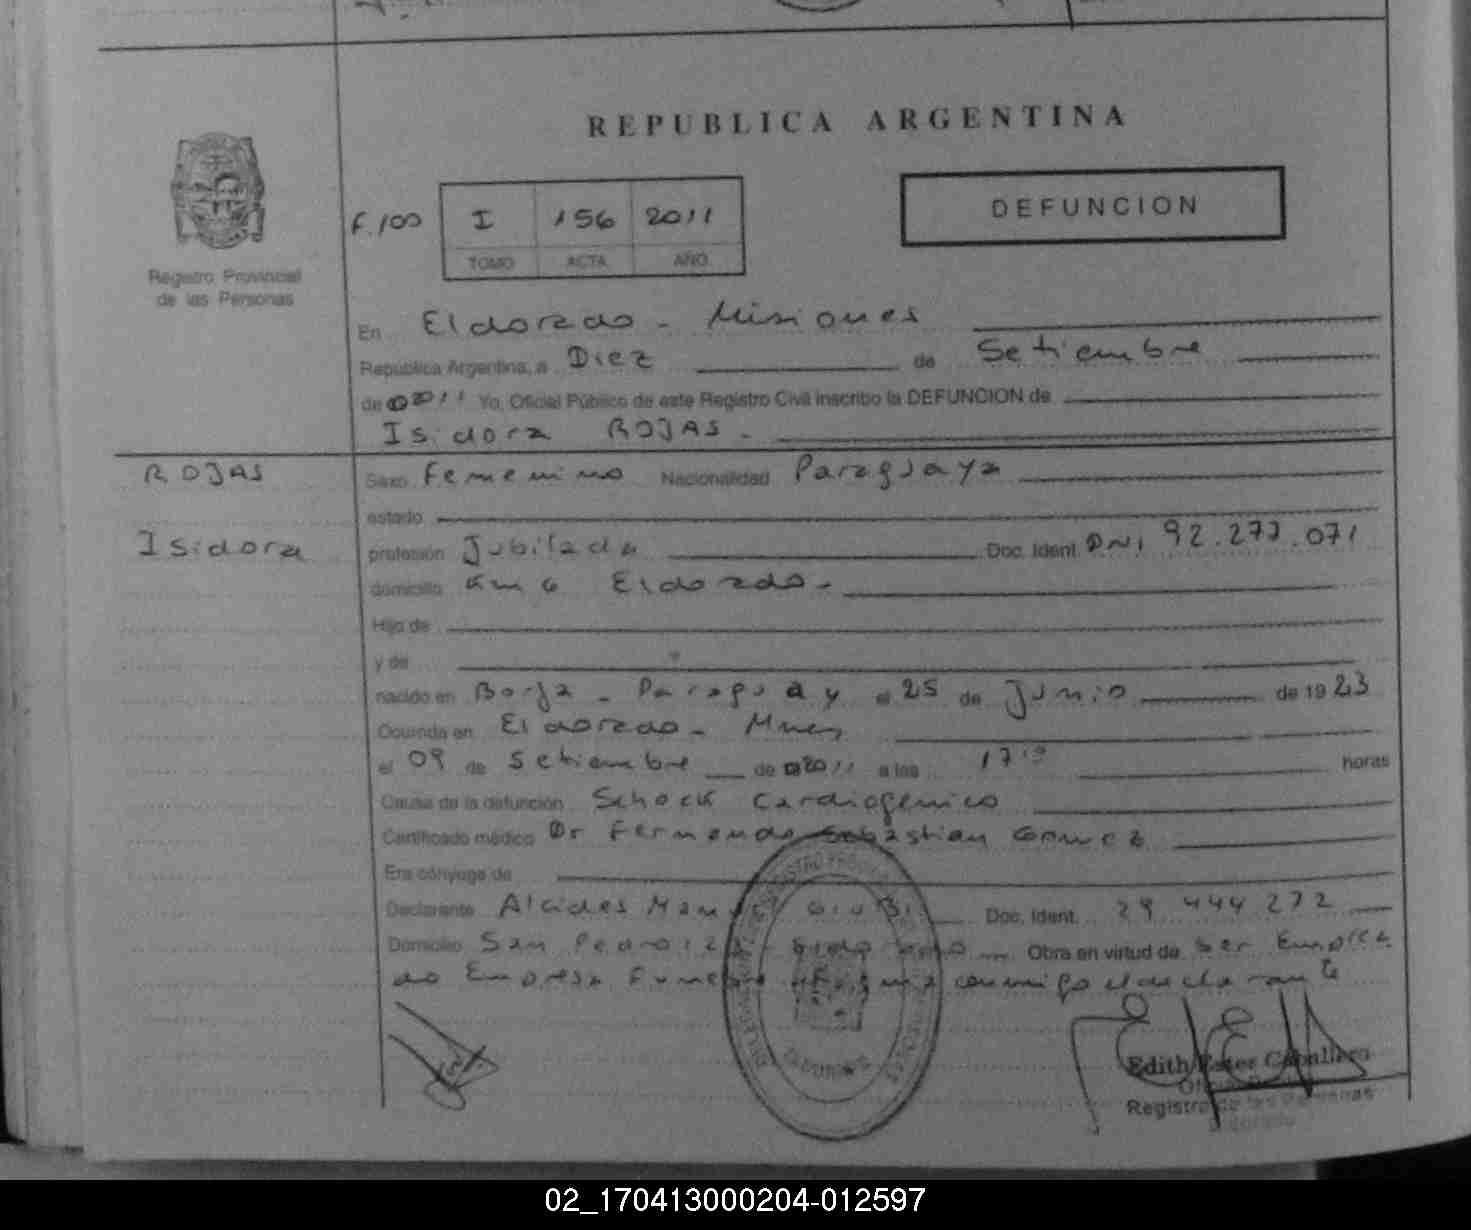 REPUBLICA ARGENTINA
DEFUNCION
F. 100 I 156 2011
TOMO ACTA AÑO
Registro Provincial
de las Personas
En Eldorado - Misiones
República Argentina, a Diez de Setiembre
de 2011 Yo, Oficial Público de este Registro Civil inscribo la DEFUNCION de
Isidora ROJAS -
ROJAS
Isidora
Sexo Femenino Nacionalidad Paraguaya
estado
profesión Jubilada Doc. Ident. DNI 92.277.071
domicilio Km 6 Eldorado -
Hijo de
y de
nacido en Borja - Paraguay el 25 de Junio de 1923
Ocurrida en Eldorado - Mnes
el 09 de Setiembre de 2011 a las 17 horas
Causa de la defunción Schock Cardiogenico
Certificado médico Dr Fernando Sebastian Gomez
Era cónyuge de
Declarante Alcides Doc. Ident. 29 444 272
Domicilio San Pedro Obra en virtud de Ser Emplea
do Empresa conmigo el declarante
Edith Ester Caballero
Registro de las Personas
02_170413000204-012597